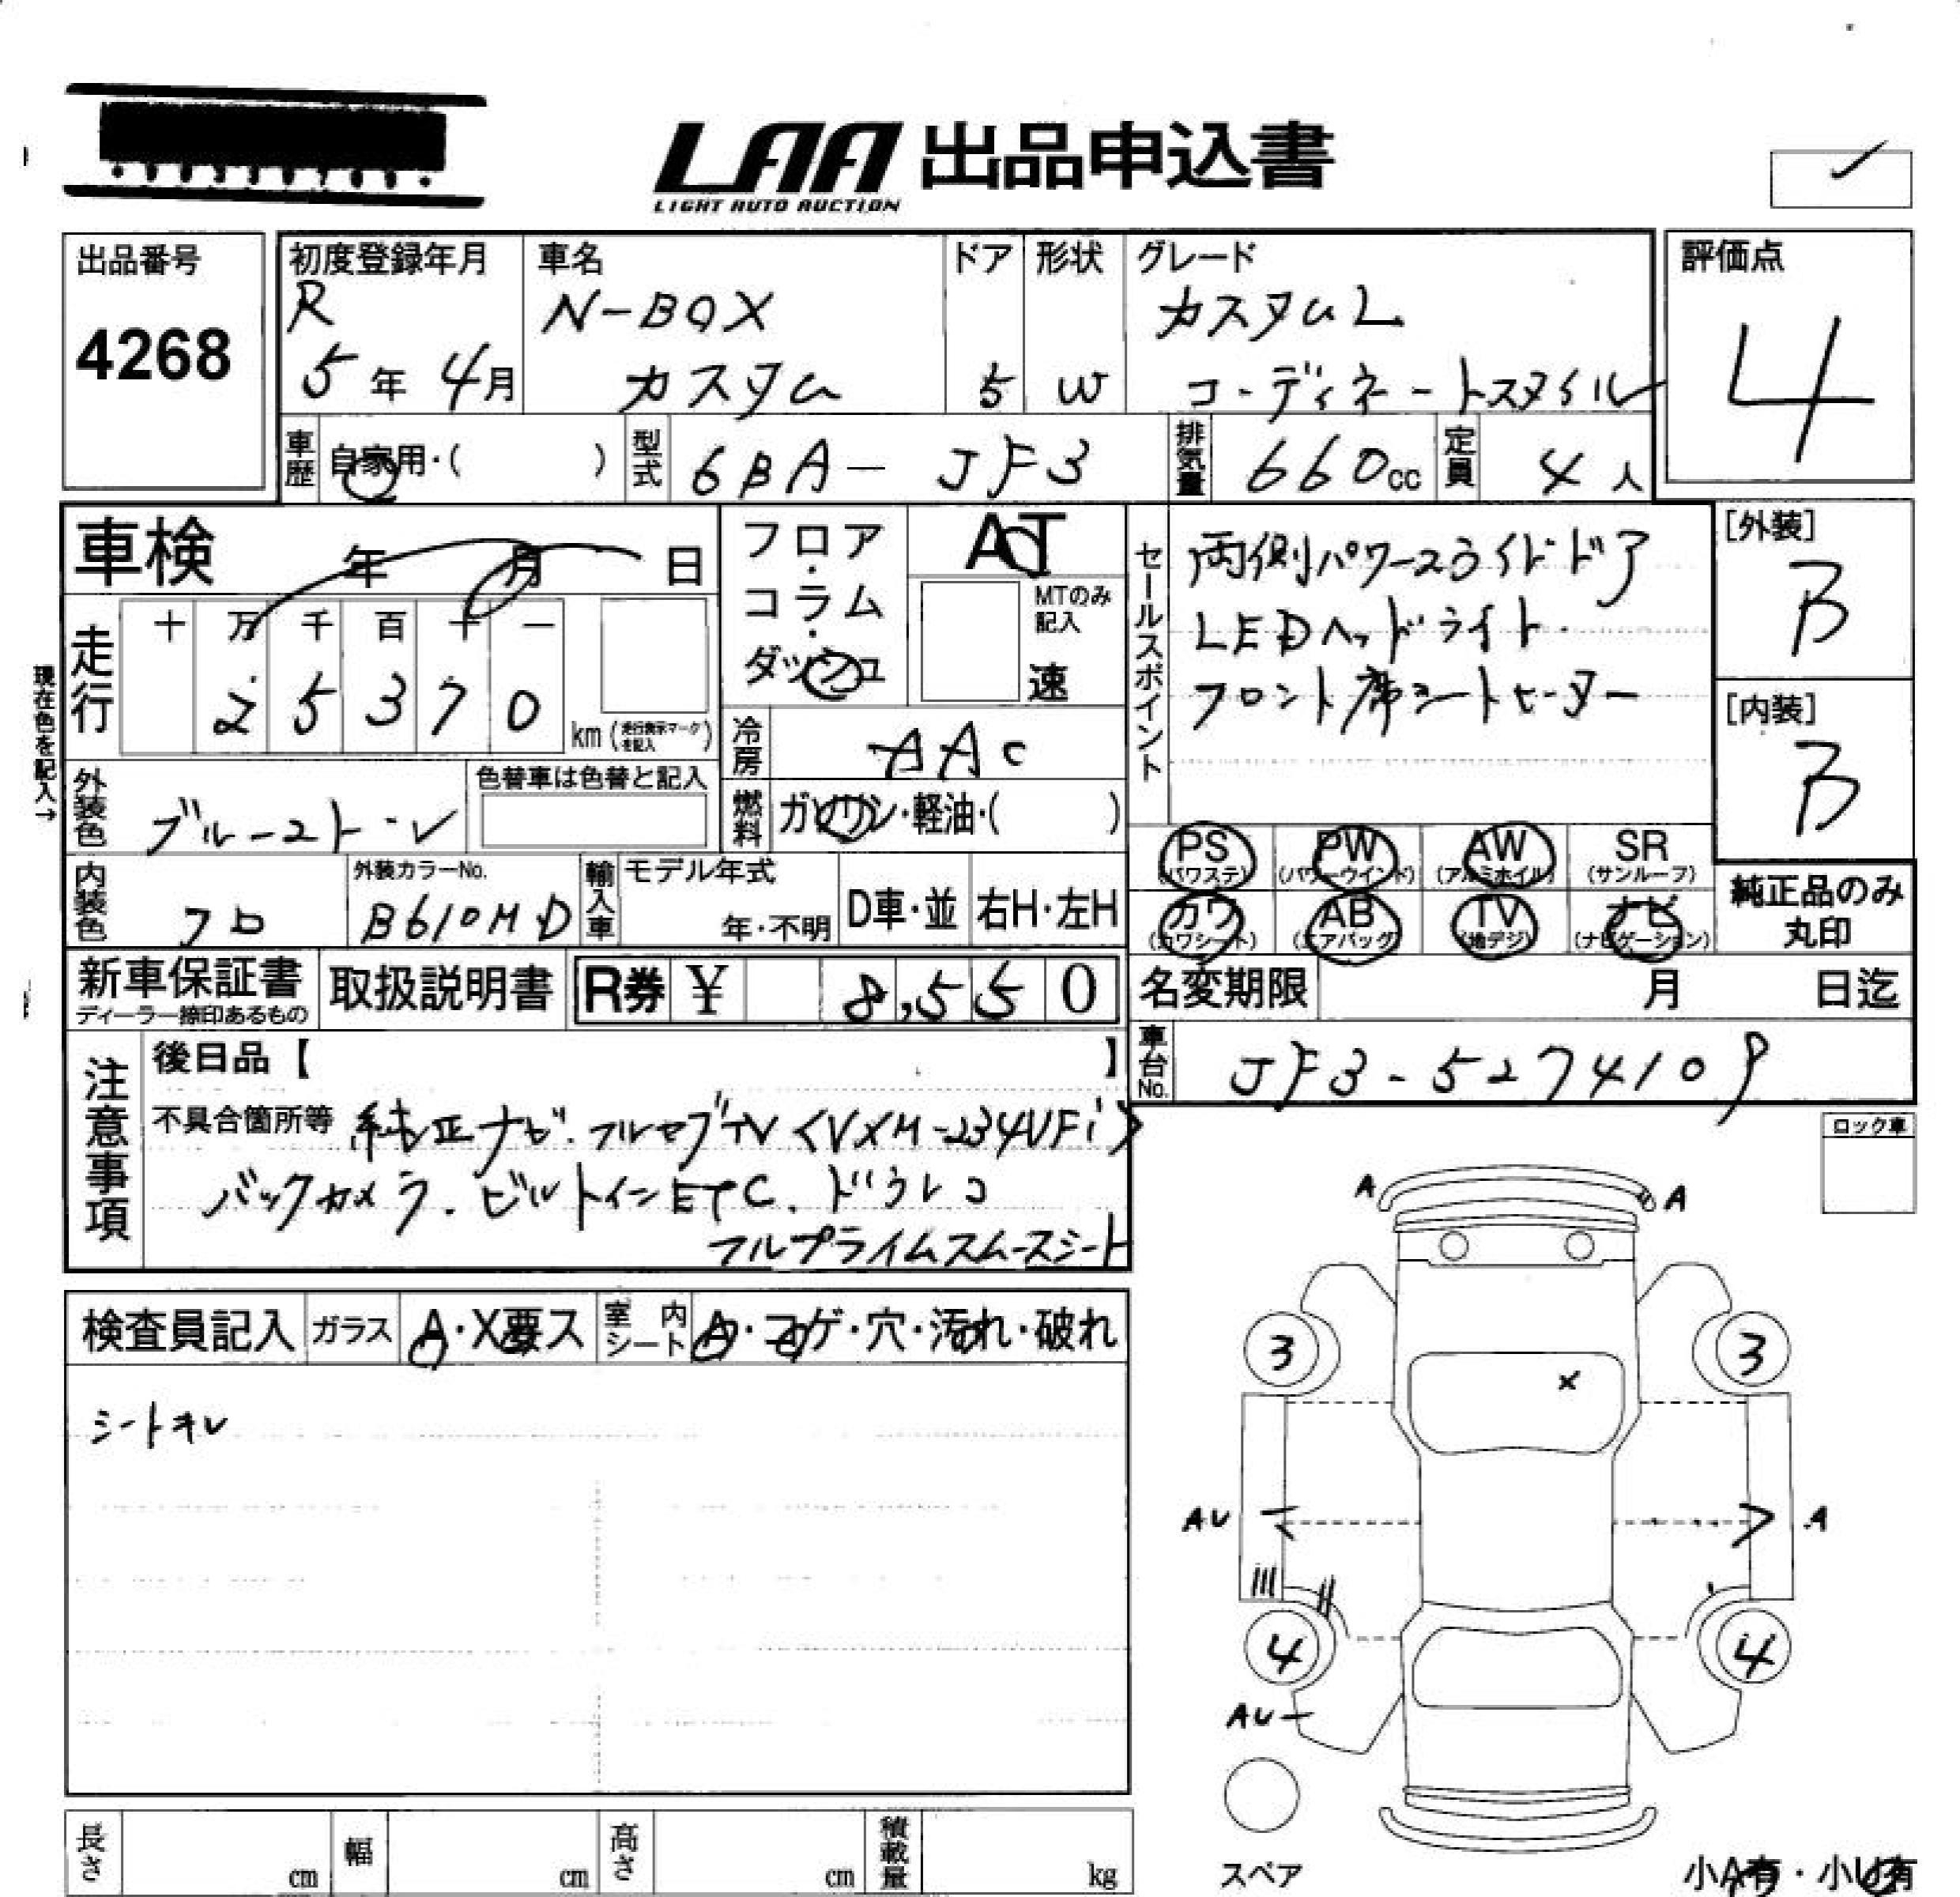 LAA 出品申込書
LIGHT AUTO AUCTION
出品番号
4268
初度登録年月
R
5年 4月
車名
N-BOX
カスタム
ドア
5
形状
W
グレード
カスタムL
コーディネートスタイル
評価点
4
車歴 自家用・( )
型式 6BA-JF3
排気量 660cc
定員 4人
車検 年 月 日
現在色を記入→
走行
十 万 千 百 十 一
2 5 3 7 0
km (走行表示マークを記入)
外装色 ブルーストーン
色替車は色替と記入
内装色 クロ
外装カラーNo.
B610MD
輸入車 モデル年式
年・不明
D車・並
右H・左H
フロア・コラム・ダッシュ
AT
MTのみ記入
速
冷房 AAC
燃料 ガソリン・軽油・( )
セールスポイント
両側パワースライドドア
LEDヘッドライト
フロント席シートヒーター
[外装]
B
[内装]
B
PS (パワステ)
PW (パワーウインド)
AW (アルミホイル)
SR (サンルーフ)
カワ (カワシート)
AB (エアバッグ)
TV (地デジ)
ナビ (ナビゲーション)
純正品のみ丸印
新車保証書
ディーラー捺印あるもの
取扱説明書
R券 ¥ 8,550
名変期限 月 日迄
車台No. JF3-5274109
注意事項
後日品【 】
不具合箇所等 純正ナビ.フルセグTV<VXM-234VFi>
バックカメラ.ビルトインETC.ドラレコ
フルプライムスムースシート
ロック車
検査員記入
ガラス A・X要ス
室内シート A・コゲ・穴・汚れ・破れ
シートキレ
A A
3 3
×
AU A
4 4
AU
スペア
小A有・小U有
長さ cm
幅 cm
高さ cm
積載量 kg